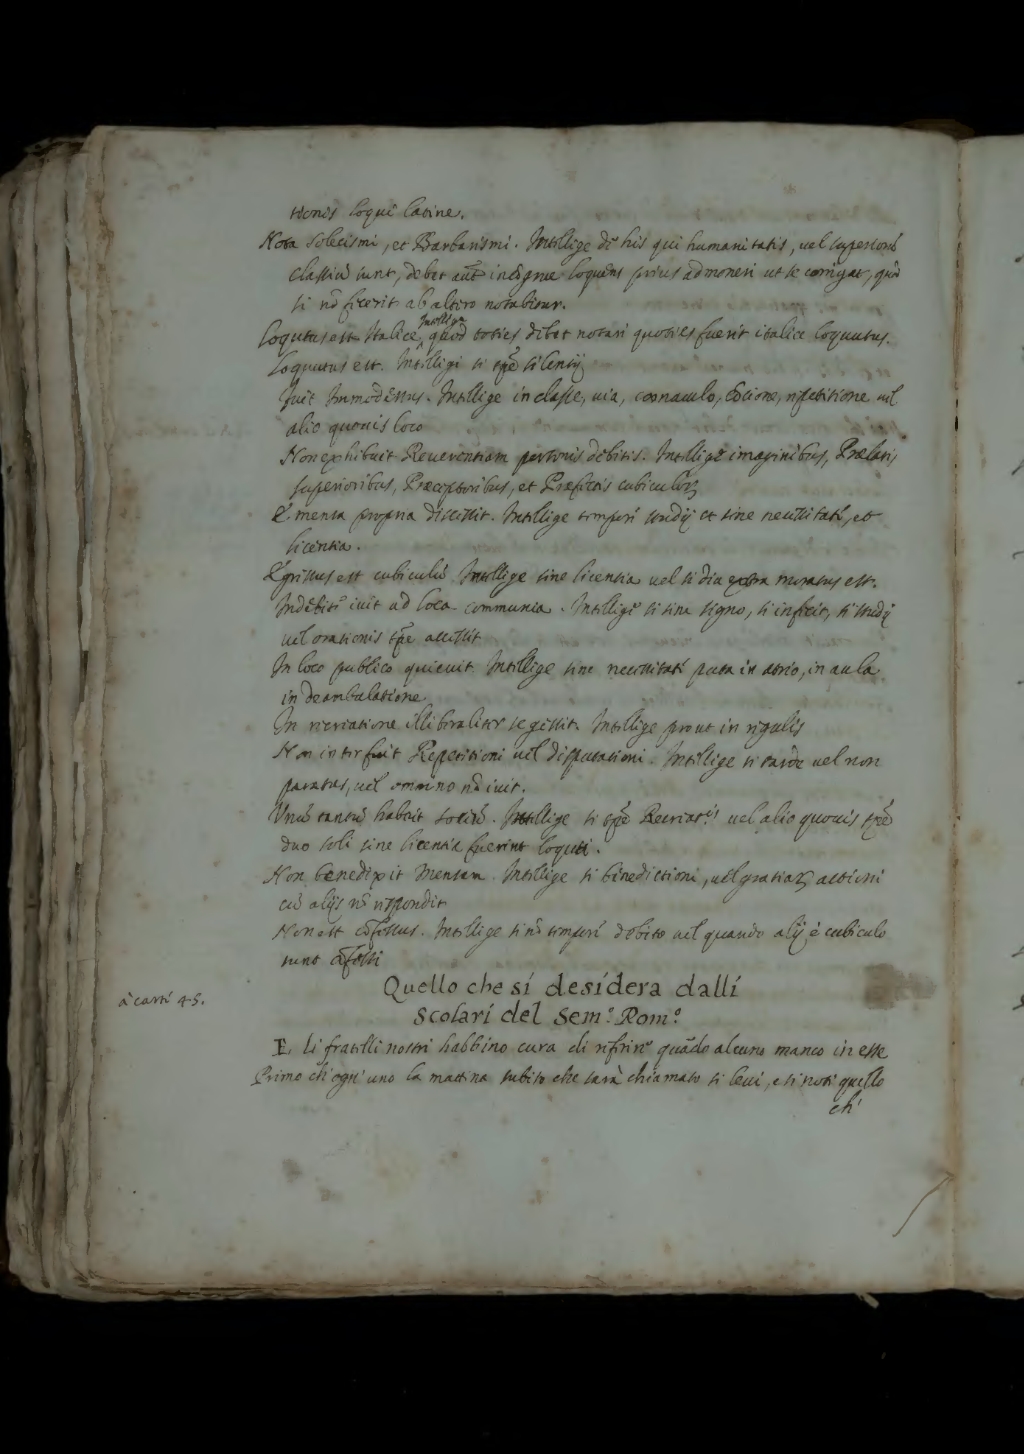 tionis loqui latine.
Nota solecismi, et Barbarismi. Intellige de his qui humanitatis, vel superioris
classiũ sunt, debet aũt incõgrue loquens prius admoneri ut se corrigat, quod
si nõ fecerit ab altero notabitur.
Loqutus est Italice, Intellige quod toties debet notari quoties fuerit italice loquutus.
Loquutus est. Intelligi si tp̃e silentij
Fuit Immodestus. Intellige in classe, via, coenaculo, lectione, repetitione vel
alio quovis loco
Non exhibuit Reverentiam personis debitis. Intellige imaginibus, Prælatis
superioribus, Præceptoribus, et Præfectis cubiculorũ
E mensa propria discessit. Intellige tempore studij et sine necessitate, et
licentia.
Egressus est cubiculũ Intellige sine licentia vel si diu extra moratus est.
Indebite ivit ad loca communia. Intellige si sine signo, si infecto, si studij
vel orationis tp̃e accessit
In loco publico quievit Intellige sine necessitate puta in atrio, in aula
in deambulatione.
In recreatione illiberaliter se gessit. Intellige prout in regulis
Non interfuit Repetitioni vel disputationi. Intellige si tarde vel non
paratus, vel omnino nõ ivit.
Unũ tantũ habuit sociũ. Intellige si tp̃e Recreatis vel alio quovis tp̃e
duo soli sine licentia fuerint loquti.
Non benedixit Mensam. Intellige si benedictioni, vel gratiarũ actioni
cũ alijs nõ respondit
Non est cõfessus. Intellige si nõ tempore debito vel quando alij è cubiculo
sunt cõfessi
Quello che si desidera dalli
scolari del Sem.º Rom.º
à carte 45.
E. li fratelli nostri habbino cura di riferire quãdo alcuno manco in esse
Primo ch'ogn'uno la mattina subito che sarà chiamato si levi, e si noti quello
ch'